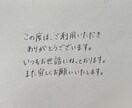 この度は、ご利用いただき
ありがとうございます。
いつもお世話になっております。
また宜しくお願いいたします。